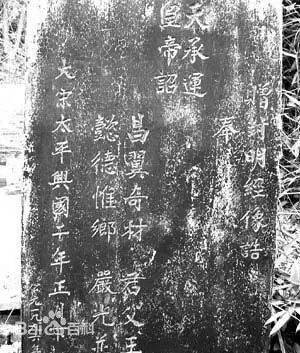 贈封明經像誥
奉
天承運
皇帝詔
昌翼奇材 君父王
懿德惟鄉 嚴光並
大宋太平興國二年正月
Bai 百科